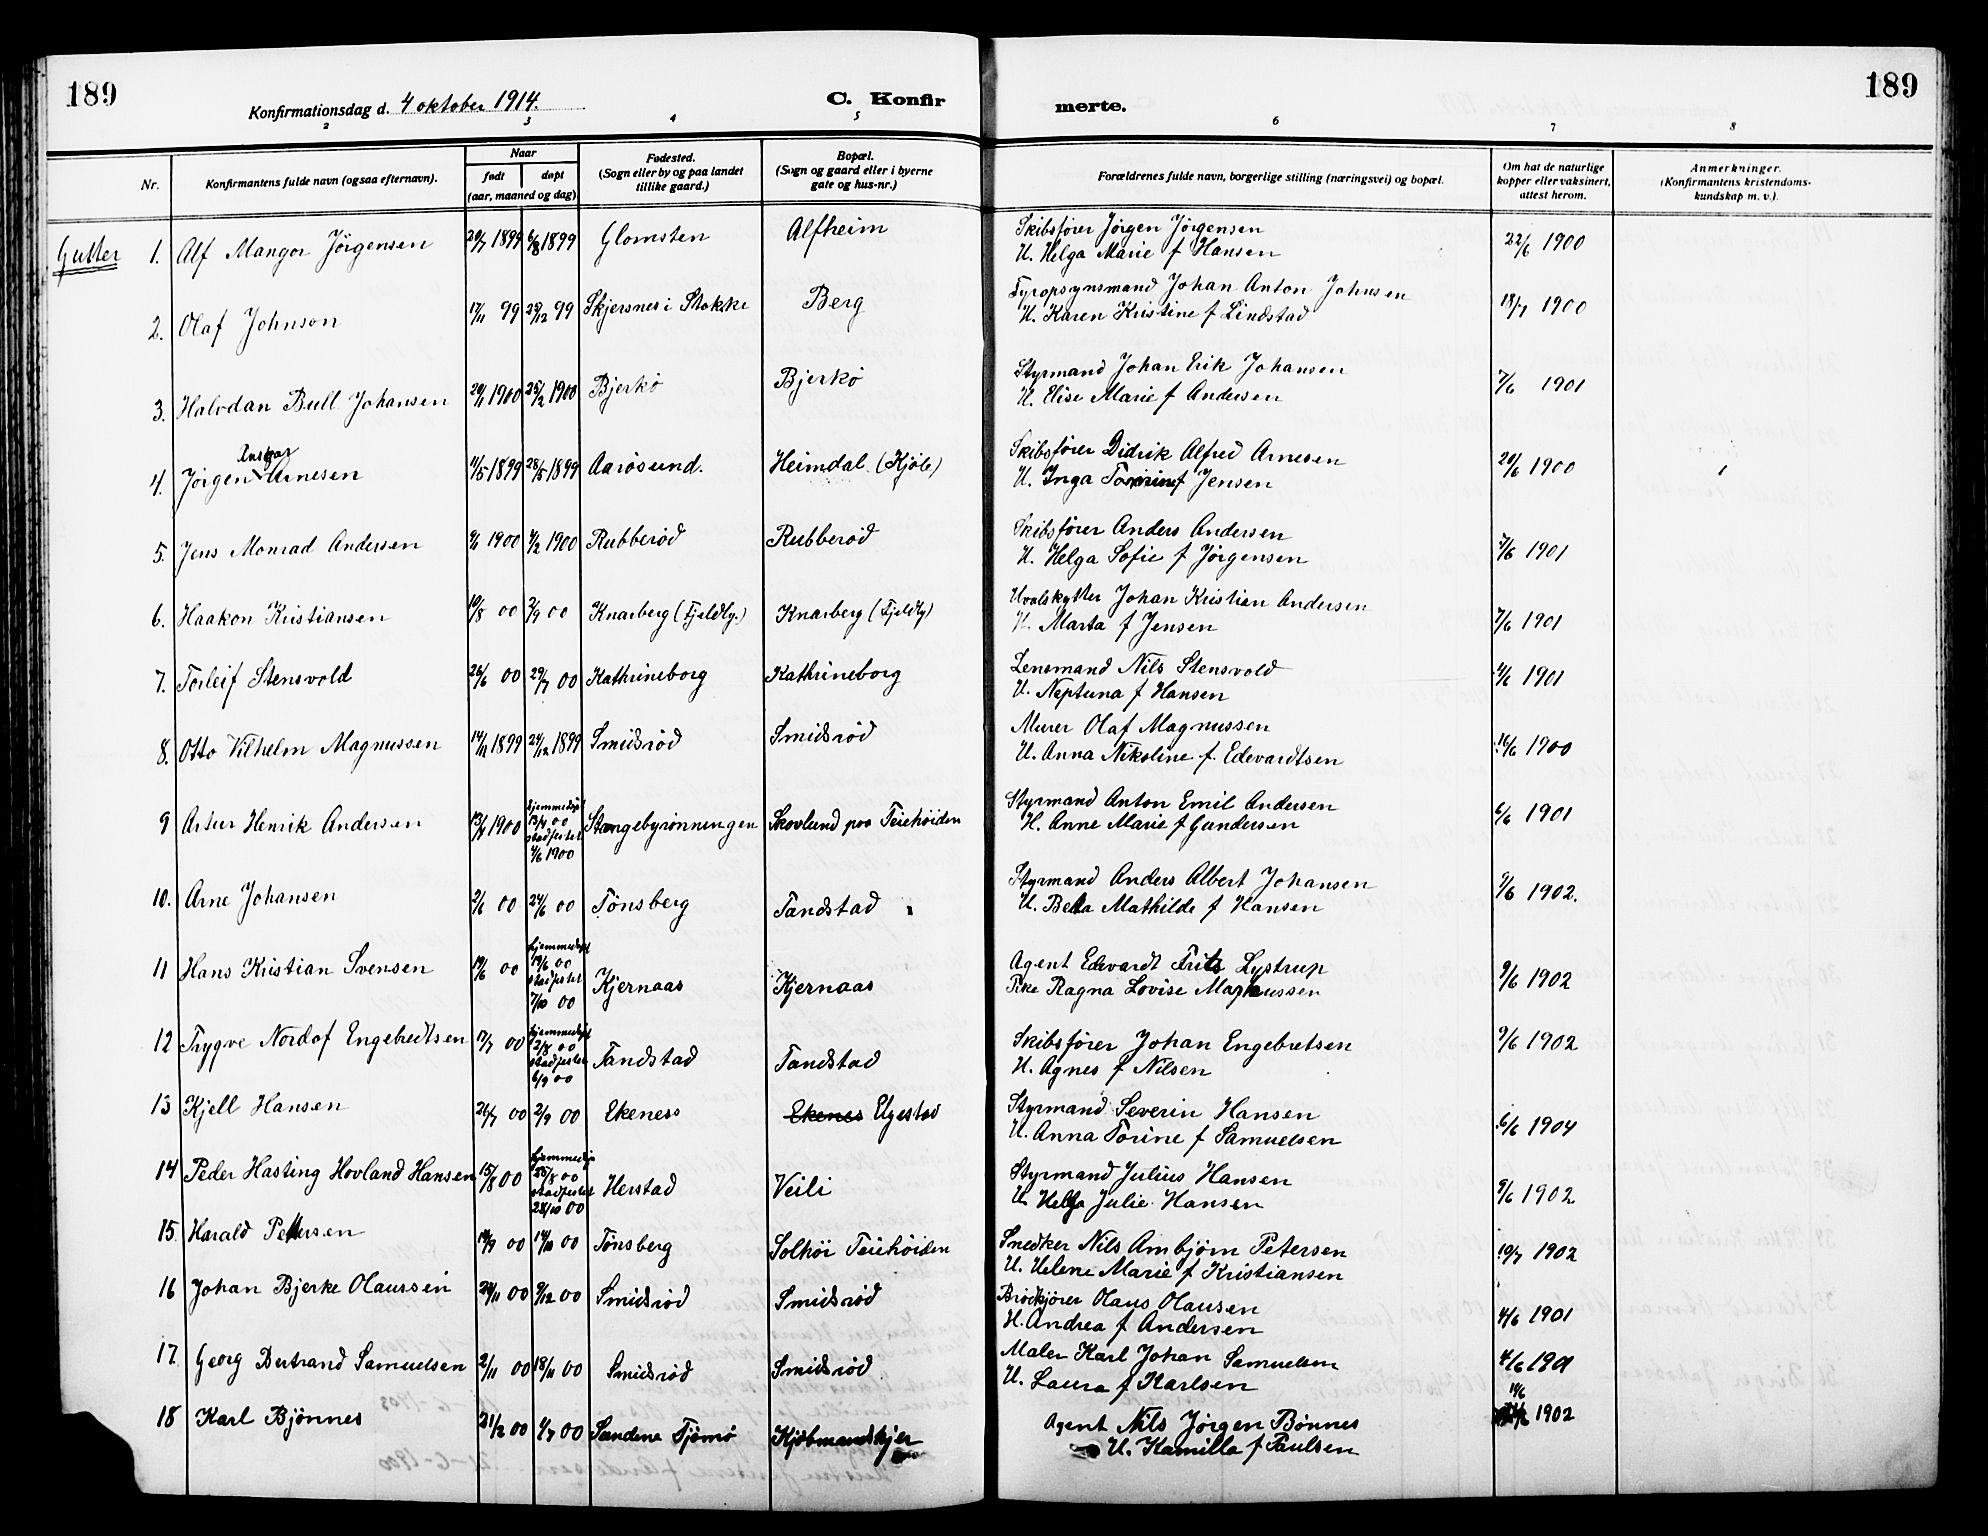 189
Konfirmationsdag d. 4 oktober 1914.
C. Konfir
merte.
189
2 3 4 5 6 7 8
Nr.
Konfirmantens fulde navn (ogsaa efternavn).
Naar
født
døpt
(aar, maaned og dag)
Fødested.
(Sogn eller by og paa landet
tillike gaard.)
Bopæl.
(Sogn og gaard eller i byerne
gate og hus-nr.)
Forældrenes fulde navn, borgerlige stilling (næringsvei) og bopæl.
Om hat de naturlige
kopper eller vaksinert,
attest herom.
Anmerkninger.
(Konfirmantens kristendoms-
kundskap m. v.).
Gutter
1. Alf Mangor Jörgensen 20/7 1899 6/8 1899 Glomsten Alfheim Skibsfører Jörgen Jörgensen 22/6 1900
H. Helga Marie f Hansen
2. Olaf Johnson 17/11 99 25/12 99 Skjersnes i Stokke Berg Fyropsynsmand Johan Anton Johnsen 18/7 1900
H. Karen Kristine f Lindstad
3. Halvdan Bull Johansen 20/1 1900 25/2 1900 Bjerkö Bjerkö Styrmand Johan Erik Johansen 7/6 1901
H. Elise Marie f Andersen
Ansgar
4. Jørgen Arnesen 11/5 1899 28/5 1899 Aarøsund. Heimdal (Kjöle) Skibsfører Didrik Alfred Arnesen 20/6 1900
H. Inga f Jensen
5. Jens Monrad Andersen 1900 4/2 1900 Rubberød Rubberød Skibsfører Anders Andersen 7/6 1901
H. Helga Sofie f Jörgensen
6. Haakon Kristiansen 19/8 00 2/9 00 Knarberg (Fjeldly.) Knarberg (Fjeldly) Hvalskytter Johan Kristian Andersen 7/6 1901
H. Marta f Jensen
7. Torleif Stensvold 26/6 00 29/7 00 Kathrineborg Kathrineborg Lensmand Nils Stensvold 4/6 1901
H. Neptuna f Hansen
8. Otto Vilhelm Magnussen 14/11 1899 24/12 1899 Smidsrød Smidsrød Murer Olaf Magnussen 16/6 1900
H. Anna Nikoline f. Edevardtsen
9 Artur Henrik Andersen 13/4 1900 hjemmedöpt
13/4 00
stadfestet
4/6 1900
Stangebyrønningen Skovlund paa Teiehøiden Styrmand Anton Emil Andersen 6/6 1901
H. Anne Marie f Gundersen
10. Arne Johansen 2/6 00 24/6 00 Tønsberg Tandstad Styrmand Anders Albert Johansen 9/6 1902.
H. Mathilde f Hansen
11 Hans Kristian Svensen 19/6 00 hjemmedöpt
19/6 00
stadfestet
7/10 00
Kjernaas Kjernaas Agent Edevardt Fritz Lystrup 9/6 1902
Pike Ragna Lovise Markussen
12 Trygve Nordof Engebredtsen 17/7 00 hjemmedöpt
2/8 00
stadfestet
6/9 00
Tandstad Tandstad Skibsfører Johan Engebretsen 9/6 1902
H. Agnes f Nilsen
13 Kjell Hansen 26/7 00 2/9 00 Ekeness Ekenes Elgestad Styrmand Severin Hansen 6/6 1904
H. Anna Torine f Samuelsen
14 Peder Hasting Hovland Hansen 15/8 00 hjemmedöp
25/8 00
stadfestet
28/10 00
Herstad Veili Styrmand Julius Hansen 9/6 1902
H. Helga Julie Hansen
15. Harald Pettersen 18/9 00 14/10 00 Tønsberg Solhöi Teiehöiden Snedker Nils Ambjørn Petersen 10/7 1902
H. Helene Marie f Kristiansen
16 Johan Bjerke Olaussen 24/11 00 9/12 00 Smidsrød Smidsrød Brödkjører Olaus Olausen 4/6 1901
H. Andrea f Andersen
17. Georg Bertrand Samuelsen 2/11 00 18/11 00 Smidsrød Smidsrød Maler Karl Johan Samuelsen 4/6 1901
H. Laura f Karlsen
18 Karl Bjønnes 21/2 00 4/7 00 Sandene Tjømø Kjöbmandskjær Agent Nils Jörgen Bönnes 1902
H. Kamilla f Paulsen